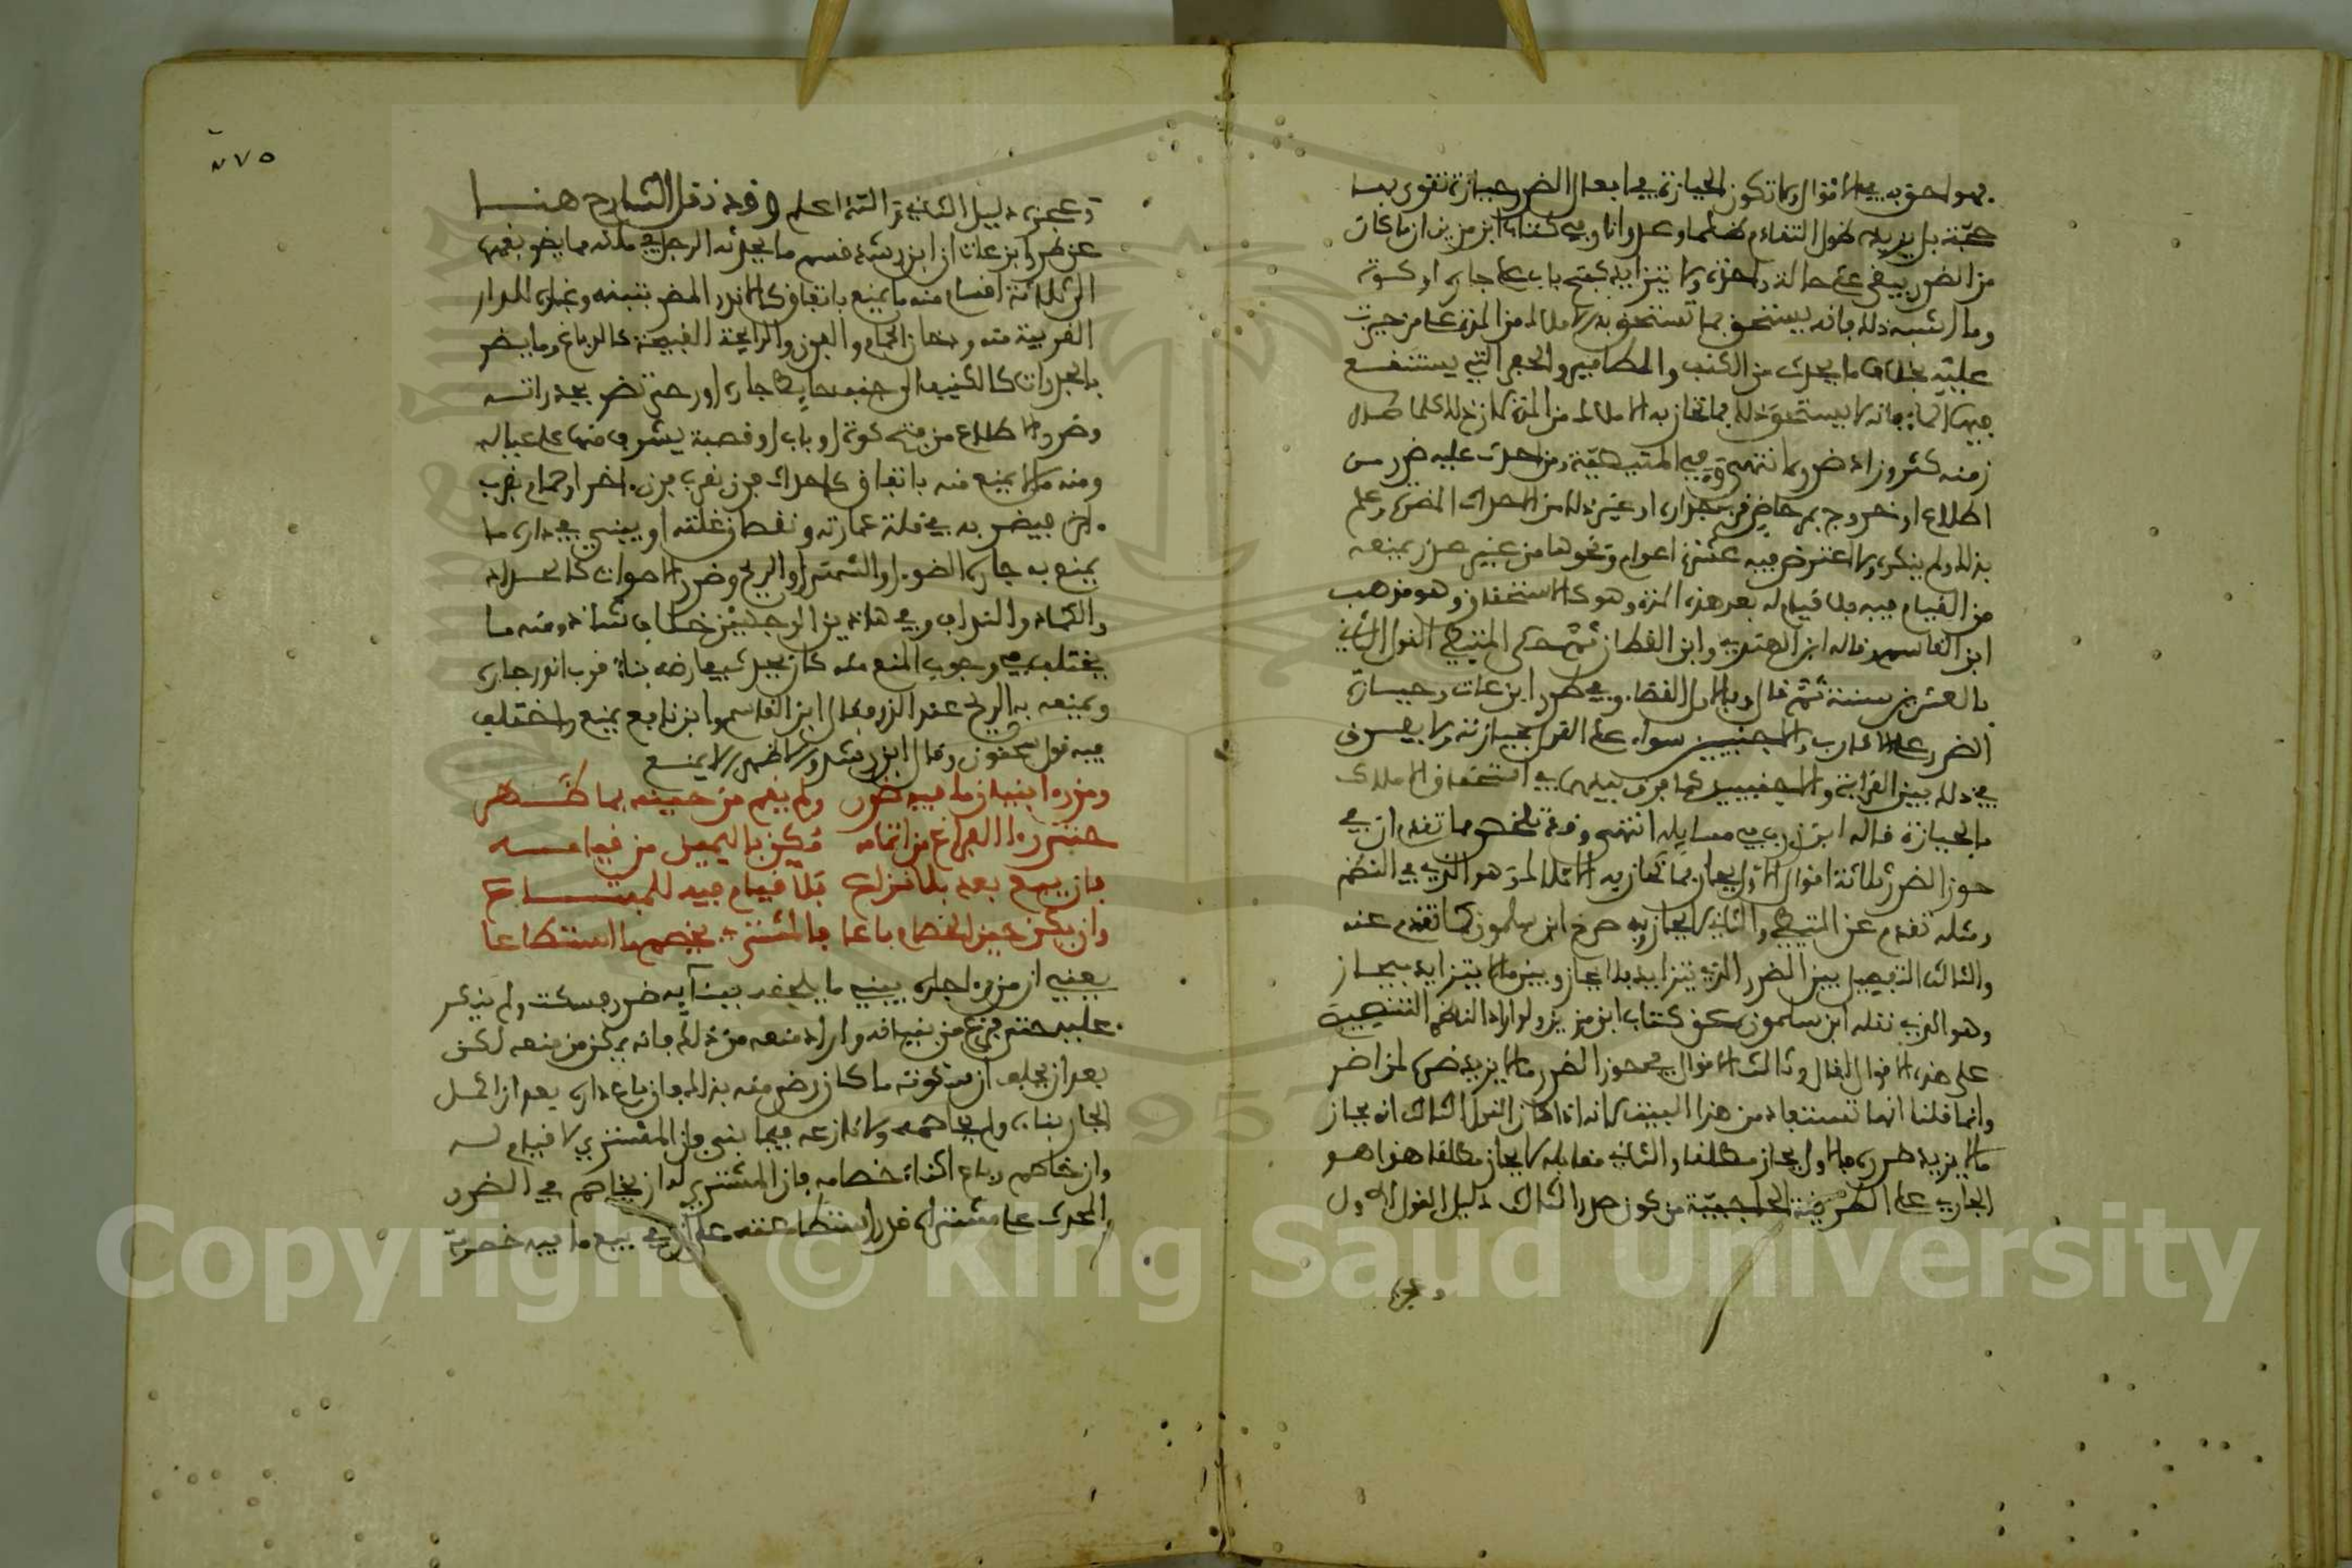 فهو احق به في الاقوال ولا تكون الحيازة في افعال الضرر حيازة تقوى بها
حجة بل يزيده طول التقادم ظلما وعدوانا وفي كتاب ابن مزين ان ما كان
من الضرر يبقى على حالة واحدة ولا يتزايد كفتح باب على جاره او كوة
وما اشبه ذلك فانه يستحق بما تستحق به الاملاك من المدة على من حيزت
عليه بخلاف ما يحدث من الكنف والمطامير والحفر التي يستنقع
فيها الماء فانه لا يستحق ذلك بما تحاز به الاملاك من المدة لان ذلك كلما طال
زمنه كثر وزاد ضرره انتهى وفي المتيطية ومن احدث عليه ضرر من
اطلاع او خروج مرحاض قرب جداره او غير ذلك من الاحداث المضرة وعلم
بذلك ولم ينكره ولا اعترض فيه عشرة اعوام ونحوها من غير عذر يمنعه
من القيام فيه فلا قيام له بعد هذه المدة وهو كالاستحقاق وهو مذهب
ابن القاسم قاله ابن الهندي وابن العطار ثم حكى المتيطي القول الثاني
بالعشرين سنة ثم قال وبالاول القضاء وفي طرر ابن عات وحيازة
الضرر على الاقارب والاجنبيين سواء على القول بحيازته ولا يفرق
في ذلك بين القرابة والاجنبيين كما فرق بينهما في استحقاق الاملاك
بالحيازة قاله ابن زرب في مسايله انتهى وقد تلخص مما تقدم ان في
حوز الضرر ثلاثة اقوال الاول يحاز بما تحاز به الاملاك وهو الذي في النظم
ومثله تقدم عن المتيطي والثاني لا يحاز وبه صرح ابن سلمون كما تقدم عنه
والثالث التفصيل بين الضرر الذي يتزايد فلا يحاز وبين ما لا يتزايد فيحاز
وهو الذي نقله ابن سلمون عن كتاب ابن مزين ولو اراد الناظم التنصيص
على هذه الاقوال لقال وثالث الاقوال في حوز الضرر ما لا يزيد ضره لمن اضر
وانما قلنا انها تستفاد من هذا البيت لانه اذا كان القول الثالث انه يحاز
ما لا يزيد ضرره فالاول يحاز مطلقا والثاني مقابله لا يحاز مطلقا هذا هو
الجاري على الطريقة الحاجبية من كون صدر الثالث دليل القول الاول
وعجزه
٢٧٥
وعجزه دليل الثاني والله اعلم وقد نقل الشارح هنا
عن طرر ابن عات ان ابن رشد قسم ما يحدثه الرجل في ملكه مما يضر بغيره
الى ثلاثة اقسام منه ما يمنع باتفاق كالاندر المضر بتبنه وغباره للدار
القريبة منه ودخان الحمام والفرن والرايحة القبيحة كالدباغ وما يضر
بالجدرات كالكنيف الى جنب حايط جاره او رحى تضر بجدراته
وضرر الاطلاع من فتح كوة او باب او قصبة يشرف منها على عياله
ومنه ما لا يمنع منه باتفاق كاحداث فرن بقرب فرن اخر او حمام بقرب
اخر فيضر به في قلة عمارته ونقصان غلته او يبني في داره ما
يمنع به جاره الضوء او الشمس او الريح وضرر الاصوات كالحداد
والكماد والنداف وفي هاذين الوجهين خلاف شاذ ومنه ما
يختلف في وجوب المنع منه كان يحدث بيعارضه بناء قرب اندر جاره
ويمنعه به الريح عند الذرو فقال ابن القاسم وابن نافع يمنع واختلف
فيه قول سحنون وقال ابن رشد والاظهر لا يمنع
ومن رءا بنيان ما فيه ضرر ولم يقم من حينه بما ظهر
حتى رءا الفراغ من اتمامه مكن باليمين من قيامه
فان يبع بعد بلا نزاع فلا قيام فيه للمبتاع
وان يكن حين الخصام باعا فالمشتري يخصم ما استطاعا
يعني ان من رءا جاره يبني ما يلحقه ببنايه ضرر فسكت ولم ينكر
عليه حتى فرغ من بنيانه واراد منعه من ذلك فانه يمكن من منعه لكن
بعد ان يحلف ان سكوته ما كان رضى منه بذلك فان باع داره بعد ان اكمل
الجار بناءه ولم يخاصمه ولا نازعه فيما بنى فان المشتري لا قيام له
وان خاصم وباع اثناء خصامه فان المشتري له ان يخاصم في الضرر
المحدث على مشتراه قدر استطاعته على ان في بيع ما فيه خصومة